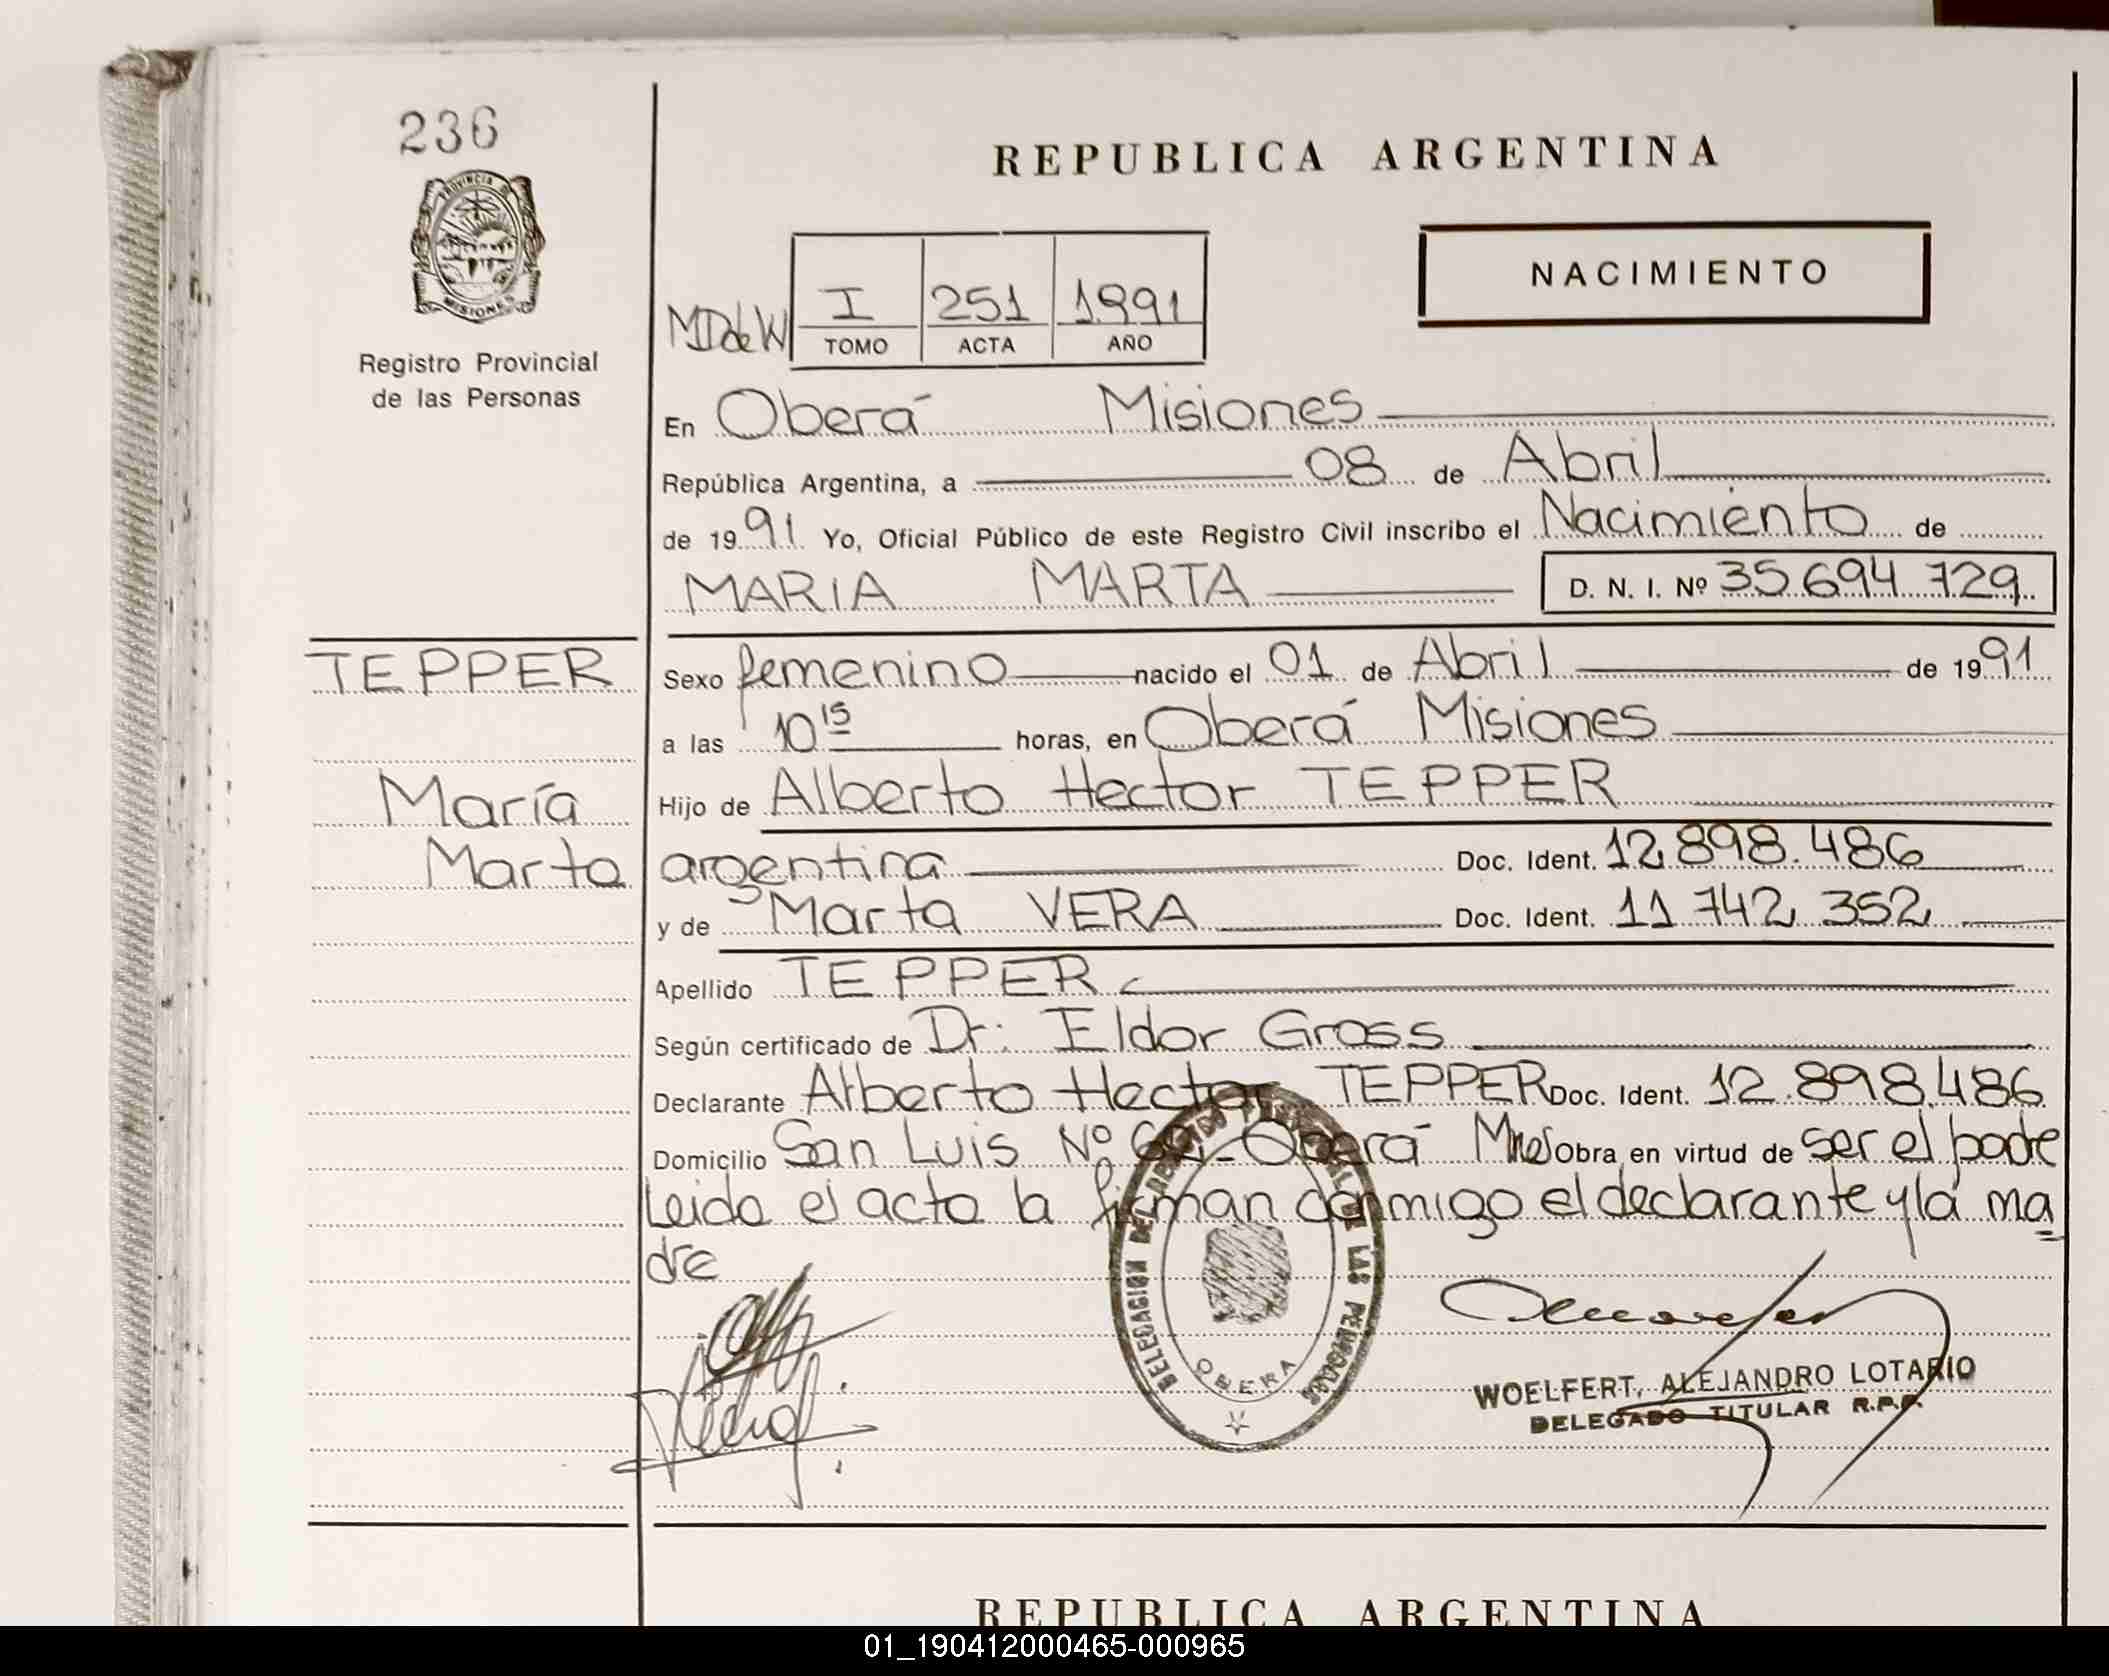 236
PROVINCIA DE
MISIONES
Registro Provincial
de las Personas
REPUBLICA ARGENTINA
NACIMIENTO
MDdeW I 251 1991
TOMO ACTA AÑO
En Oberá Misiones
República Argentina, a 08 de Abril
de 1991 Yo, Oficial Público de este Registro Civil inscribo el Nacimiento de
MARIA MARTA D. N. I. Nº 35.694.729
TEPPER
María
Marta
Sexo femenino nacido el 01 de Abril de 1991
a las 10 15 horas, en Oberá Misiones
Hijo de Alberto Hector TEPPER
argentina Doc. Ident. 12.898.486
y de Marta VERA Doc. Ident. 11.742.352
Apellido TEPPER
Según certificado de Dr. Eldor Gross
Declarante Alberto Hector TEPPER Doc. Ident. 12.898.486
Domicilio San Luis Nº Oberá Mnes Obra en virtud de ser el padre
Leida el acta la firman conmigo el declarante y la ma
dre
DELEGACION DEL REGISTRO DE LAS PERSONAS
OBERA
WOELFERT, ALEJANDRO LOTARIO
DELEGADO TITULAR R.P.P.
REPUBLICA ARGENTINA
01_190412000465-000965